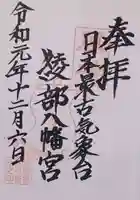 奉拝
日本最古気象台
綾部八幡宮
令和元年十二月六日